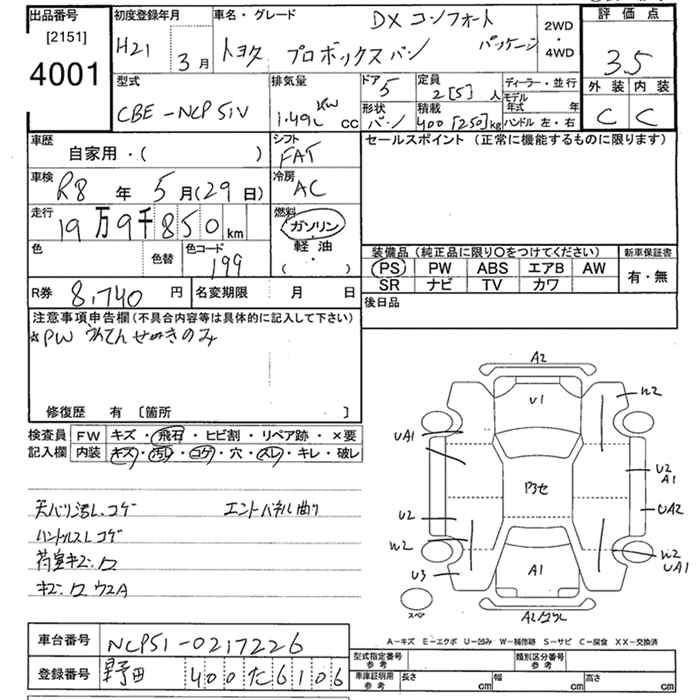 出品番号
[2151]
4001
初度登録年月
H21 3月
車名・グレード
トヨタ プロボックスバン
DX コンフォート
パッケージ
2WD
・
4WD
評価点
3.5
外装 内装
C C
型式
CBE-NCP51V
排気量
1.49L cc
ドア
5
形状
バン
定員
2[5]人
積載
400[250]kg
ディーラー・並行
モデル
年式 年
ハンドル 左・右
車歴
自家用・( )
車検
R8年5月(29日)
走行
19万9千850km
色
色替
色コード
199
シフト
FAT
冷房
AC
燃料
ガソリン
・
軽油
・
( )
セールスポイント (正常に機能するものに限ります)
装備品 (純正品に限り○をつけてください)
PS PW ABS エアB AW
SR ナビ TV カワ
新車保証書
有・無
後日品
R券 8,740円
名変期限 月 日
注意事項申告欄(不具合内容等は具体的に記入して下さい)
☆PW うんてんせきのみ
修復歴 有 [箇所 ]
検査員
記入欄
FW キズ・飛石・ヒビ割・リペア跡・×要
内装 キズ・汚れ・コゲ・穴・スレ・キレ・破レ
天バリ汚レ.コゲ
エントパネル曲り
ハンドルスレ コゲ
荷室キズ.ワ
キズ.ワ ウエA
A2
U1
W2
UA1
U2
A1
P3セ
UA2
U2
W2
W2
UA1
U3
A1
スペア
A-キズ E-エクボ U-凹み W-補修跡 S-サビ C-腐食 XX-交換済
車台番号 NCP51-0217226
登録番号 野田 400た6106
型式指定番号
参考
類別区分番号
参考
車庫証明用
参考
長さ cm
幅 cm
高さ cm